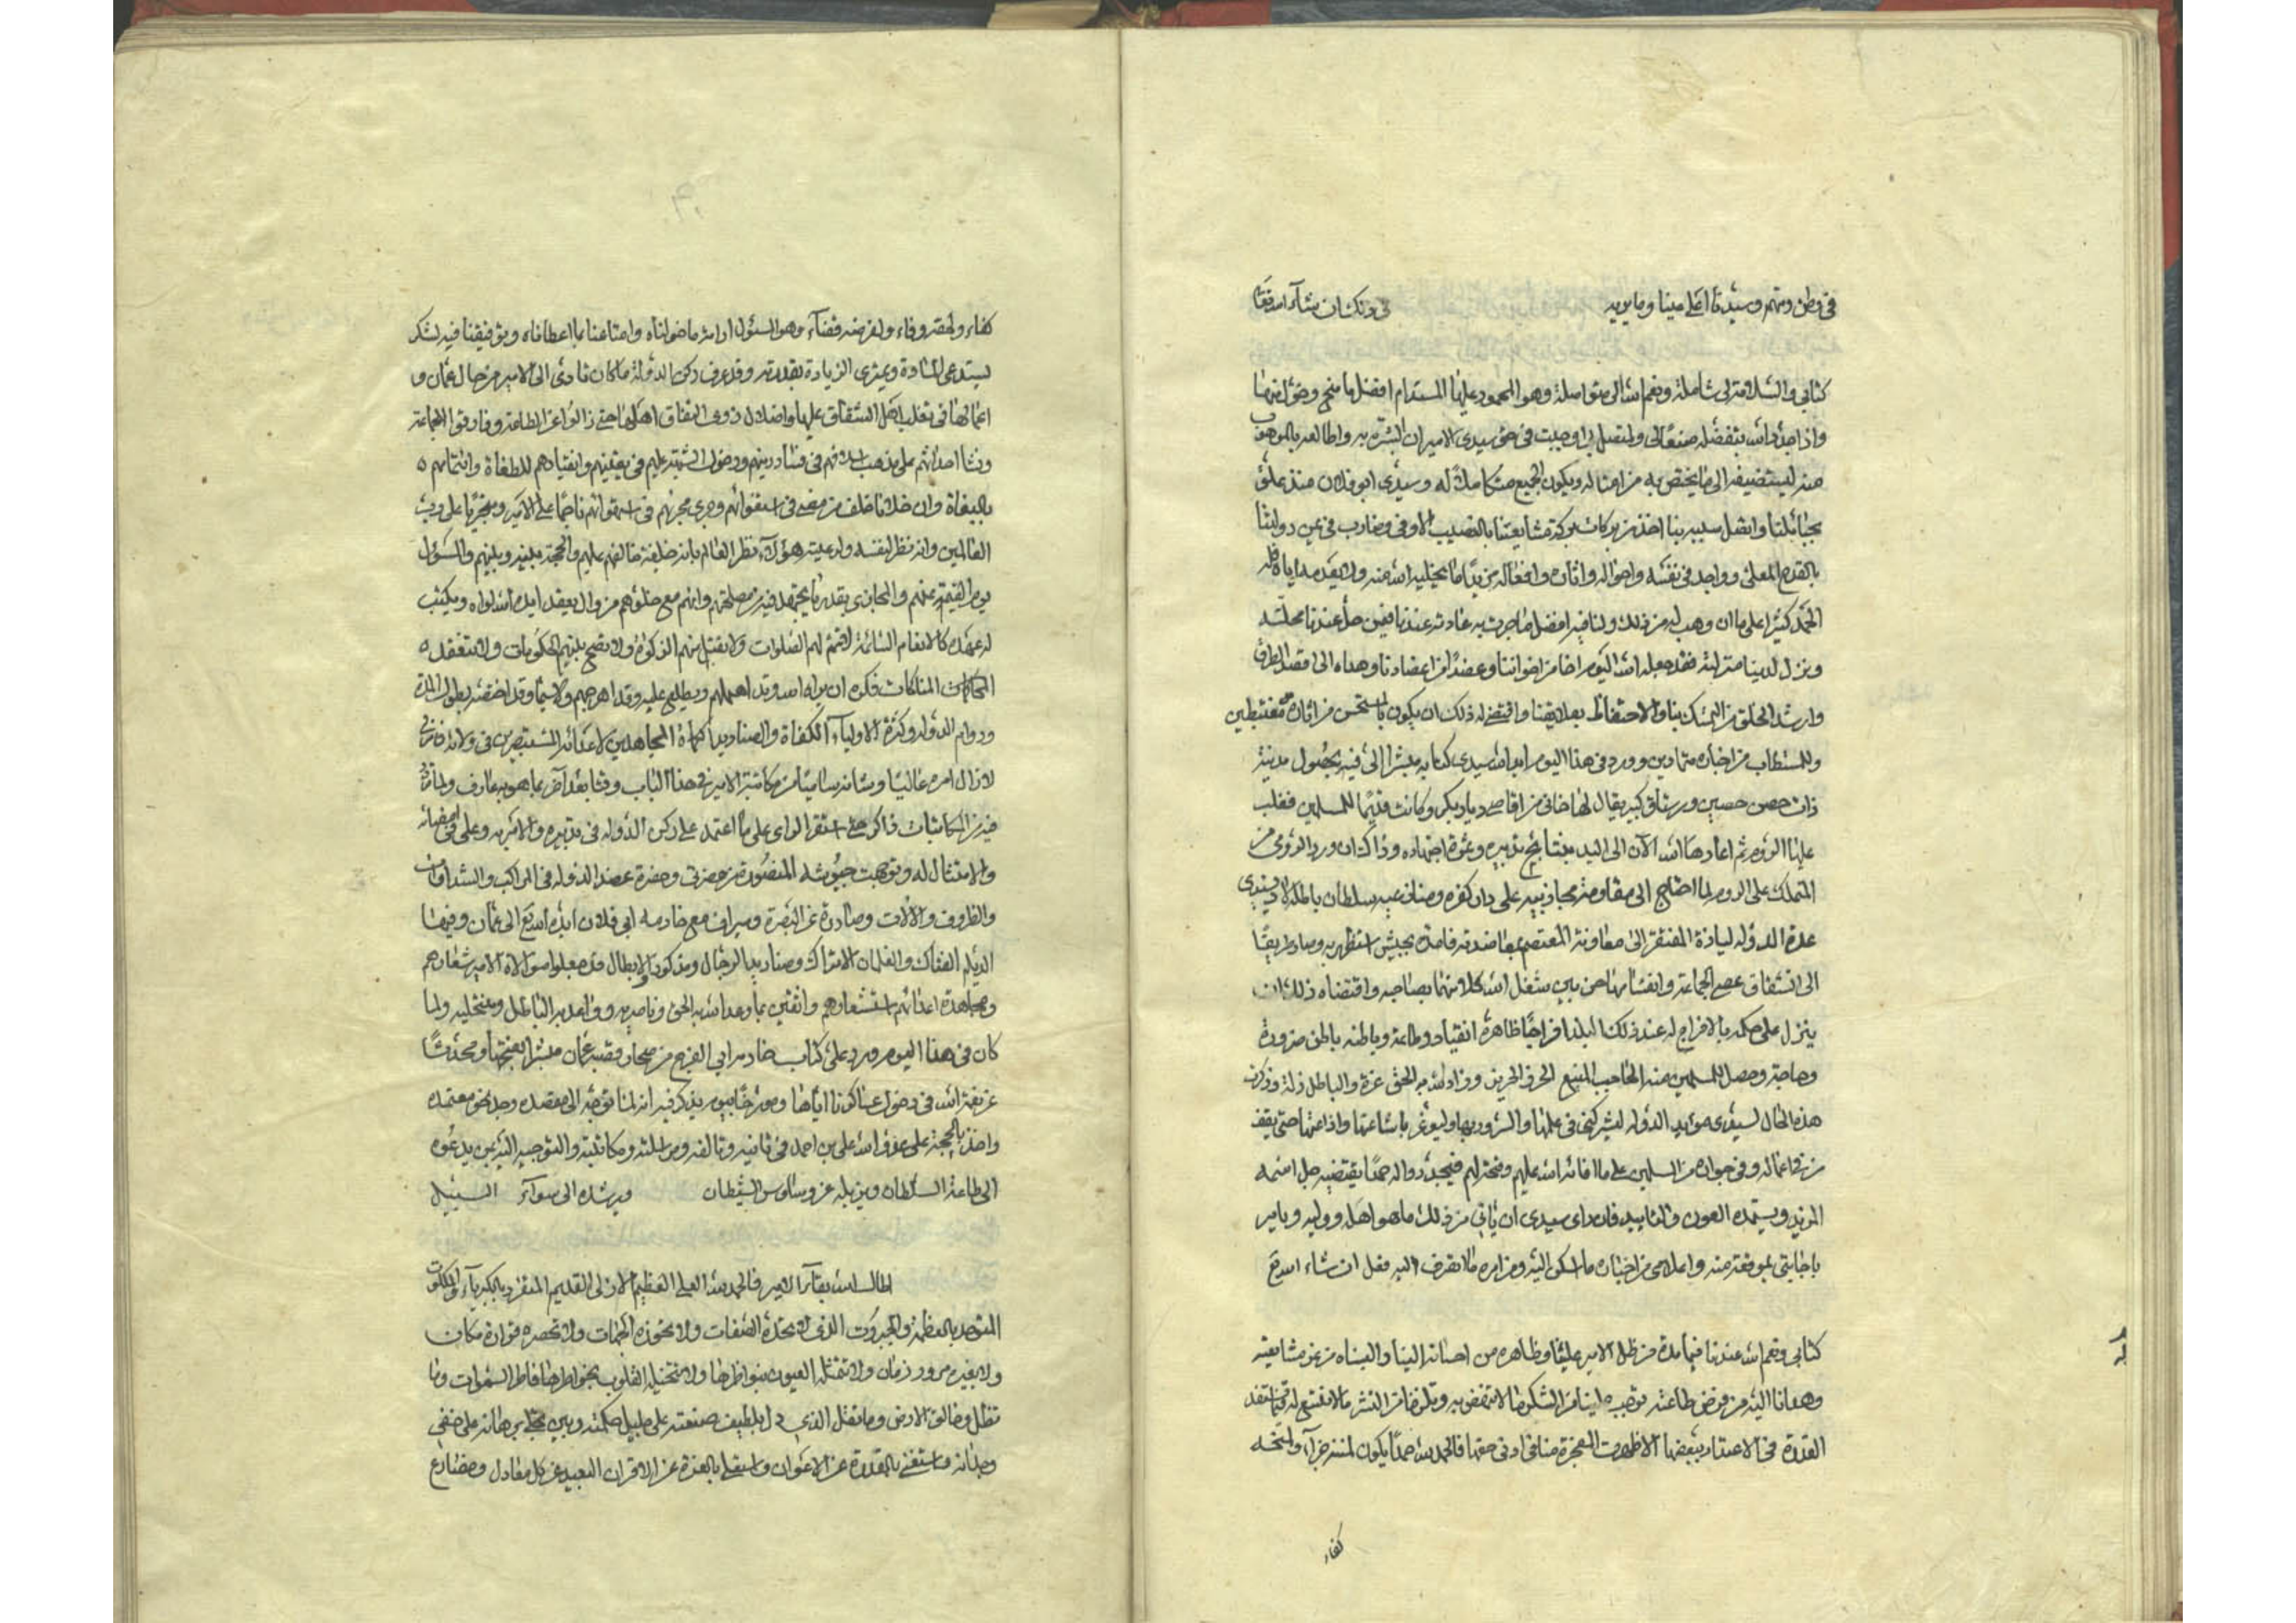 في وطن ومتهم وسيدنا اعلى عينا وما يريه في ذلك ان شآء الله تعا
كتابي والسلامة لي شاملة ونعم الله الى متواصلة وهو المحمود عليها المستدام افضل ما منح وخول منها
واذا جدد الله بتفضله صنعا لي ولمتصل بي اوجبت في حق سيدي الامير ان ابشره به واطالعه بالموهوب
منه ليستضيفه الى ما يختص به من امثاله ويكون الجميع متكاملا له وسيدي ابو فلان منذ علق
بحبائلنا واتصل سببه بنا اخذ من بركات بركة مشايعتنا بالنصيب الاوفى وضارب في عن دولتنا
بالقدح المعلى وواجد في نفسه واحواله واثاره وافعاله مزيدا ما يخليه الله منه ولا يعدمه اياه فله
الحمد كثيرا على ما ان وهب له من ذلك ولنا فيه افضل ما جرت به عادته عندنا فيمن حل عندنا محله
ونزل لدينا منزلته فقد جعله الله اليوم اخا من اخواننا وعضدا من اعضادنا وهداه الى اقصد الطرق
وارشد الخلق من التمسك بنا والاحتفاظ بعلايقنا واقتضى له ذلك ان يكون بالمستحسن من اثاره مغتبطين
وللمستطاب من اخباره متهادين وورد في هذا اليوم ايد الله سيدي كتابه مبشرا الى فيه بحصول مدينة
ذات حصن حصين ورستاق كبير يقال لها خاني من اقاصي ديار بكر وكانت قديما للمسلمين فغلب
عليها الروم ثم اعادها الله الآن الى اليد بنتايج تدبيره وثمرة اجتهاده وذاك ان ورد الرومي
المتملك على الروم لما احتاج الى مقاومة مجاذبيه على دار كفره ومنازعيه سلطان باطله لاذ بسيدي
عدة الدولة لياذة المفتقر الى معاونته المعتصم بمعاضدته فامده بجيش استظهر به وصار طريقا
الى انشقاق عصى الجماعة وانفشا مناحن بين شغل الله كلا منهما بصاحبه واقتضاه ذلك ان
ينزل على حكمه بالافراج له عند ذلك البلد افراجا ظاهره انقياد وطاعة وباطنه بالحق ضرورة
وحاجة وحصل للمسلمين منه الجانب المنيع الحرز الحريز وزاد الله به الحق عزة والباطل ذلة وذكرت
هذه الحال لسيدي مويد الدولة ليشركني في علمها والسرور بها وليوعز باشاعتها واذاعتها حتى يقف
من في اعماله وفي جواره من المسلمين على ما افائه الله عليهم وفتحه لهم فيجددوا له حمدا يقتضيه جل اسمه
المزيد ويستمده العون والتاييد فان راى سيدي ان ياتي من ذلك ما هو اهله ووليه ويامر
باجابتي بموقعه منه واعلامي من اخباره ما اسكن اليه ومن امره ما اتصرف اليه فعل ان شاء الله تع
كتابي ونعم الله عندنا فيما مده من ظل الامير علينا وظاهره من احسانه الينا والبسناه من عز مشايعته
وهدانا اليه من فرض طاعته توجب علينا من الشكر ما لا ننهض به وتلزمنا من النشر ما لا نتسع له
القدرة في الاعتداد ببعضها الا ظهرت المعجزة منا في ادنى حقها فالحمد لله حمدا يكون لمننه جزآء ولمنحه
كفاء
كفاء ولحقه وفاء ولفرضه قضآء وهو المسئول ادامة ما خولناه وامتاعنا بما اعطاناه وتوفيقنا فيه لشكر
يستدعي المادة ويمترى الزيادة بقدرته وقد عرف ركن الدولة ما كان تادى الى الامير من حال عمان و
اعمالها في تغلب اهل الشقاق عليها واضلال ذوى النفاق اهلها حتى زالوا عن الطاعة وفارقوا الجماعة
ونشا احداثهم على مذهب اسلافهم في فساد دينهم ودخول الشبهة عليهم في يقينهم وانقيادهم للطغاة وائتمامهم
بالبغاة وان خلفا خلف من مضى في استغوائهم وجرى مجراهم في استهوائهم ناجما على الامير ومجتريا على رب
العالمين وانه نظر لنفسه ولرعيته هؤلآء نظر العالم بانه خليفة خالقهم عليهم والحجة بينه وبينهم والمسؤول
يوم القيمة عنهم والمجازى بقدر ما يجتهد فيه من مصلحتهم وانهم مع خلوهم من وال يعقد ايده الله لواه ويكتب
له عهده كالانعام السائمة لا تتم لهم الصلوات ولا تقبل منهم الزكوة ولا تصح بينهم الحكومات ولا تنعقد
المناكات فكره ان يراه الله وقد اهملهم ويطلع عليه وقد اهرجهم ولا سيما وقد اختصه بطول المدة
ودوام الدولة وكثرة الاوليآء الكفاة والصناديد الحماة المجاهدين لاعدائه المستبصرين في ولائه
لا زال امره عاليا وشانه ساميا من مكاتبة الامير في هذا الباب وفتا بعد آخر بما هو به عارف
من المكاتبات ذاكر حتى استقر الراى على ما اعتمد على ركن الدولة في تدبيره والامر به وعلى في امضائه
والامتثال له وتوجهت جيوشه المنصورة من حضرتي وحضرة عضد الدولة في المراكب والشذاوات
والظروف والالات وصادرة عن البصرة وسيراف مع خادمه ابي فلان ايده الله تع الى عمان وفيها
الديلم الفتاك والغلمان الاتراك وصناديد الرجال ومذكورو الابطال قد جعلوا موالاة الامير شعارهم
ومجاهدة اعدائهم استشعارهم واثقين بما وعد الله به الحق وناصريه وواعد به الباطل ومنتحليه ولما
كان في هذا اليوم ورد على كتاب خادم ابي الفرج من صحار قصبة عمان مبشرا بفتحها ومحدثا
عن نعمة الله في دخول عساكرنا اياها ومورخا بيوم يذكر فيه انه لما توجه الى مقصده وجد نحو معتمده
واخذ بالحجة على عدو الله علي بن احمد في ثانيه وتالفه ومراسلته ومكاتبته والتوجيه اليه بمن يدعوه
الى طاعة السلطان ويزيله عن وساوس الشيطان ويرشده الى سوآء السبيل
اطال الله بقآء الامير فالحمد لله العلي العظيم الازلي القديم المتفرد بالكبريآء والملكوت
المتوحد بالعظمة والجبروت الذي لا تحده الصفات ولا تحوزه الجهات ولا تحصره قرارة مكان
ولا يغيره مرور زمان ولا تتمثله العيون بنواظرها ولا تتخيله القلوب بخواطرها فاطر السموات وما
تظل وخالق الارض وما تقل الذي دل بلطيف صنعته على جليل حكمته وبين بجلي برهانه على خفي
وجدانه واستغنى بالقدرة عن الاعوان واستعلى بالعزة عن الاقران البعيد عن كل معادل ومضارع